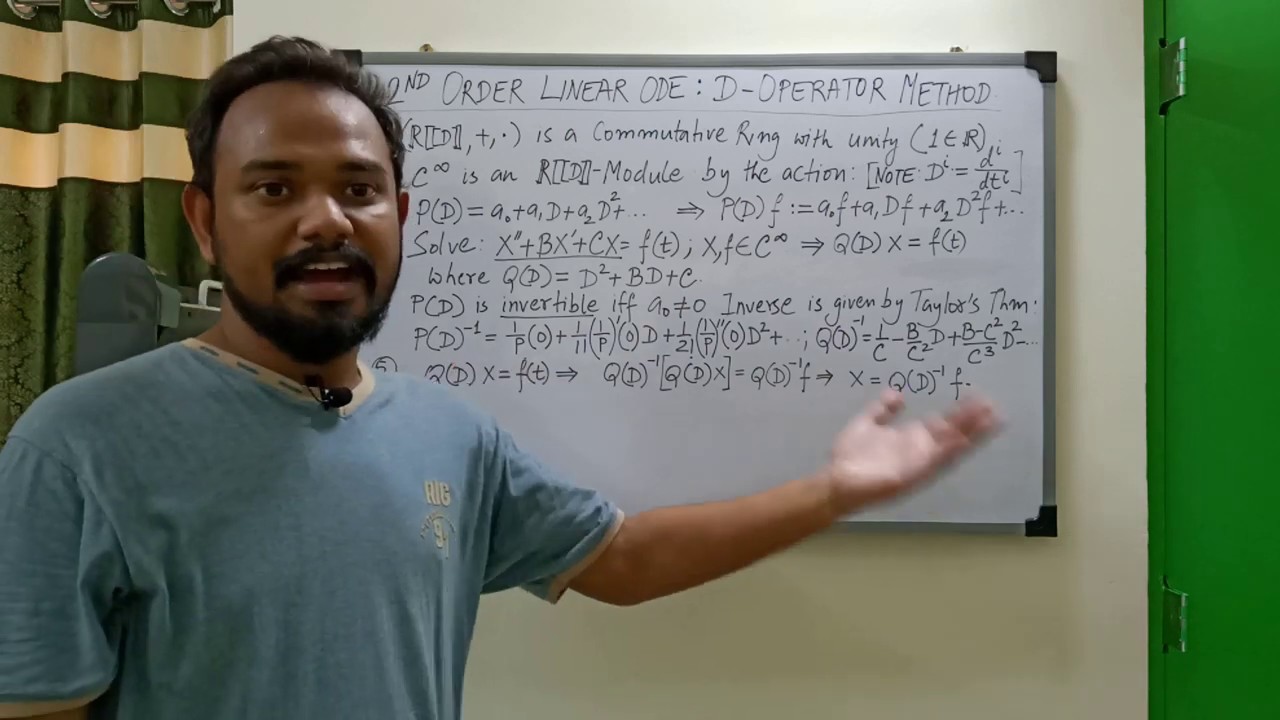 2ND ORDER LINEAR ODE: D-OPERATOR METHOD
(R[[D]], +, ·) is a Commutative Ring with unity (1 ∈ R).
C^∞ is an R[[D]]-Module by the action: [NOTE: D^i = d^i/dt^i]
P(D) = a₀+a₁D+a₂D²+... ⇒ P(D)f := a₀f+a₁Df+a₂D²f+...
Solve: X''+BX'+CX = f(t); X,f ∈ C^∞ ⇒ Q(D)X = f(t)
where Q(D) = D²+BD+C.
P(D) is invertible iff a₀≠0 Inverse is given by Taylor's Thm:
P(D)⁻¹ = 1/P(0) + 1/1!(1/P)'(0)D + 1/2!(1/P)''(0)D²+...; Q(D)⁻¹ = 1/C - B/C² D + B-C²/C³ D²-...
Q(D)X = f(t) ⇒ Q(D)⁻¹[Q(D)X] = Q(D)⁻¹f ⇒ X = Q(D)⁻¹f.
RIG